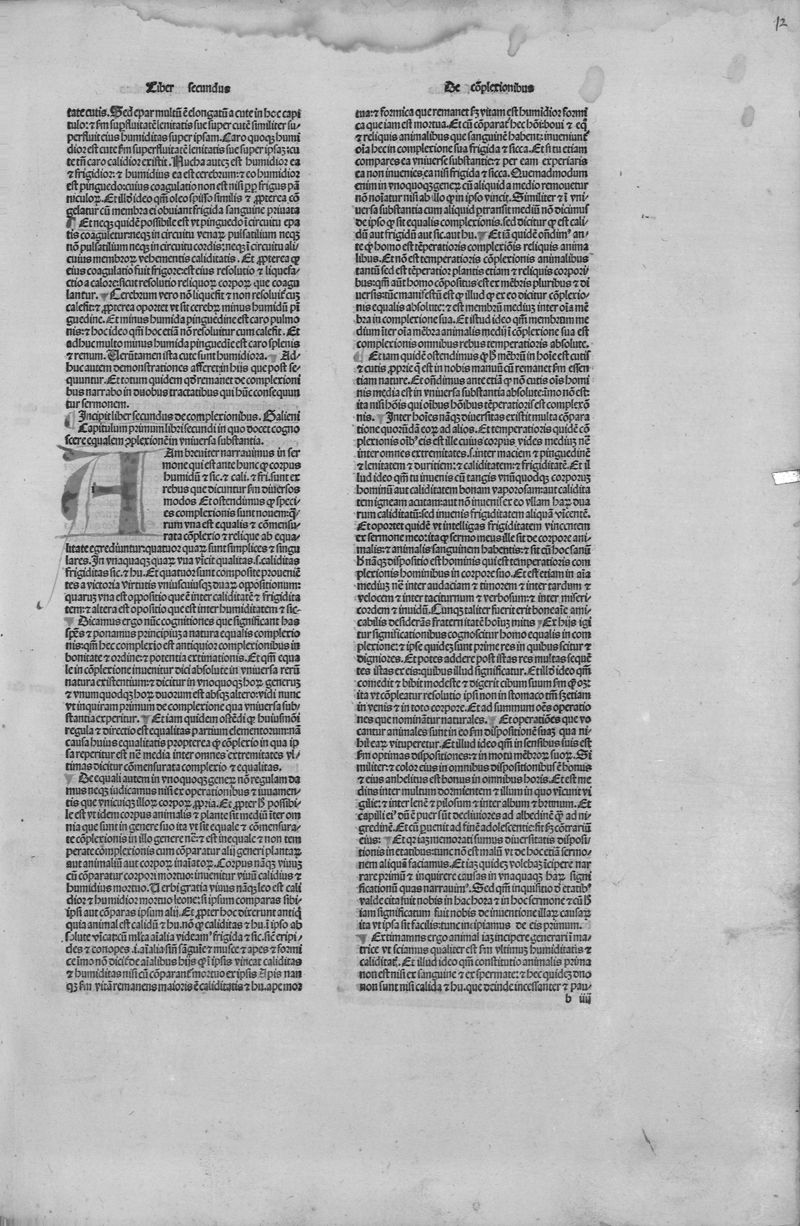 12
Liber secundus
tate cutis. Sed epar multũ ẽ elongatũ a cute in hoc capi
tulo: ⁊ fm supfluitatẽ lenitatis sue super cutẽ similiter su-
perfluit eius humiditas super ipsam. Caro quoqꝫ humi
dior est cute fm superfluitatẽ lenitatis sue super ipsaꝫ: cu
te tñ caro calidior existit. Nucha auteꝫ est humidior ea
⁊ frigidior: ⁊ humidius ea est cerebrum: ⁊ eo humidior
est pinguedo: cuius coagulatio non est nisi ꝓꝑ frigus pã
niculoꝝ. Et illð ideo qm̃ oleo spisso similis ⁊ ꝓpterea cõ
gelatur cũ membra ei obuiant frigida sanguine priuata
Et neqꝫ quidẽ possibile est vt pinguedo ĩ circuitu epa
tis coaguletur neqꝫ in circuitu venaꝝ pulsatilium neqꝫ
nõ pulsatilium neqꝫ in circuitu cordis: neqꝫ ĩ circuitu ali
cuius membroꝝ vehementis caliditatis. Et ꝓpterea ꝙ
eius coagulatio fuit frigore: est eius resolutio ⁊ liquefa-
ctio a calore: sicut resolutio reliquoꝝ corpoꝝ que coagu
lantur. Cerebrum vero nõ liquefit ⁊ non resoluit̃ cuꝫ
calefit: ⁊ ꝓpterea oportet vt sit cerebꝝ minus humidũ pĩ
guedine. Et minus humida pinguedine est caro pulmo
nis: ⁊ hoc ideo qm̃ hoc etiã nõ resoluitur cum calefit. Et
adhuc multo minus humida pinguedĩe est caro splenis
⁊ renum. Uerũtamen ista cute sunt humidiora. Ad-
huc autem demonstrationes afferet̃ in hijs que post se-
quuntur. Et totum quidem qð remanet de complexioni
bus narrabo in duobus tractatibus qui hũc consequun
tur sermonem.
Incipit liber secundus de complexionibus. Galieni
Capitulum primum libri secundi in quo docet cogno
scere equalem ꝯplexionẽ in vniuersa substantia.
Am breuiter narrauimus in ser
mone qui est ante hunc ꝙ corpus
humidũ ⁊ sic. ⁊ cali. ⁊ fri. sunt ex
rebus que dicuntur fm diuersos
modos Et ostendimus ꝙ speci-
es complexionis sunt nouem: q̃-
rum vna est equalis ⁊ cõmensu-
rata cõplexio ⁊ relique ab equa-
litate egrediuntur: quatuor quaꝝ sunt simplices ⁊ singu
lares. In vnaquaqꝫ quaꝝ vna vĩcit qualitas. s. caliditas
frigiditas sic. ⁊ hu. Et quatuor sunt composite prouenie
tes a victoria virtutis vniuscuiusqꝫ duaꝝ oppositionum:
quaruꝫ vna est oppositio que ẽ inter caliditatẽ ⁊ frigidita
tem: ⁊ altera est opositio que est inter humiditatem ⁊ sic-
Dicamus ergo nũc cognitiones que significant has
spẽs ⁊ ponamus principiuꝫ a natura equalis complexio
nis: qm̃ hec complexio est antiquior complexionibus in
bonitate ⁊ ordine: ⁊ potentia extimationis. Et qm̃ equa
le in cõplexione inuenitur dici absolute in vniuersa rerũ
natura existentium: ⁊ dicitur in vnoquoqꝫ hoꝝ generuꝫ
⁊ vnumquodqꝫ hoꝝ duorum est absqꝫ altero: vidi nunc
vt inquiram primum de complexione qua vniuersa sub/
stantia experitur. Et iam quidem ostẽdi ꝙ huiusmõi
regula ⁊ directio est equalitas partium elementorum: nã
causa huius equalitatis propterea ꝙ cõplexio in qua ip
sa reperitur est nẽ media inter omnes extremitates vl-
timas dicitur cõmensurata complexio ⁊ equalitas.
De equali autem in vnoquoqꝫ geneꝝ nõ regulam da
mus neqꝫ iudicamus nisi ex operationibus ⁊ iuuamen-
tis que vnicuiqꝫ illoꝝ corpoꝝ ꝓpria. Et ꝓpter h̃ possibi-
le est vt idem corpus animalis ⁊ plante sit mediũ ĩter om
nia que sunt in genere suo ita vt sit equale ⁊ cõmensura-
te cõplexionis in illo genere nẽ: ⁊ est inequale ⁊ non tem
perate cõmplexionis cum cõparatur alij generi plantaꝝ
aut animaliũ aut corpoꝝ inaĩatoꝝ. Corpus nãqꝫ viuuꝫ
cũ cõparatur corpori mortuo: inuenitur viuũ calidius ⁊
humidius mortuo. Uerbi gratia viuus nãqꝫ leo est cali
dior ⁊ humidior mortuo leone: si ipsum comparas sibi-
ipsi aut cõparas ipsam alij. Et ꝓpter hoc dixerunt antiq̃
quia animal est calidũ ⁊ hu. nõ ꝙ caliditas ⁊ hu. ĩ ipso ab
solute vĩcat: cũ ml̃ta aĩalia videam̃ frigida ⁊ sic. sic̃ eripi-
des ⁊ conopes. i. aĩalia sĩn sãguĩe ⁊ musce ⁊ apes ⁊ formi
ce ĩmo nõ dicit̃ de aĩalibus hijs ꝙ ĩ ipsis vincat caliditas
⁊ humiditas nisi cũ cõparant̃ mortuo ex ipsis Apis nan
qꝫ fm vitã remanens maioris ẽ caliditatis ⁊ hu. ape mor
De cõplexionibus
tua: ⁊ formica que remanet fꝫ vitam est humidior formi
ca que iam est mortua. Et cũ cõparat̃ hec hõi: boui ⁊ eq̃
⁊ reliquis animalibus que sanguinẽ habent: inueniunt̃
oĩa hec in complexione sua frigida ⁊ sicca. Et si tu etiam
compares ea vniuerse substantie: ⁊ per eam experiaris
ea non inuenies ea nisi frigida ⁊ sicca. Quemadmodum
enim in vnoquoqꝫ geneꝝ cũ aliquid a medio remouetur
nõ noĩatur nisi ab illo ꝙ in ipso vincit. Similiter ⁊ ĩ vni-
uersa substantia cum aliquid ptransit mediũ nõ dicimus
de ipso ꝙ sit equalis complexionis. sed dicitur ꝙ est cali-
dũ aut frigidũ aut sic. aut hu. Et iã quidẽ oñdim̃ an-
te ꝙ homo est tẽperatioris complexiõis reliquis anima
libus. Et nõ est temperatioris cõplexionis animalibus
tantũ sed est tẽperatior plantis etiam ⁊ reliquis corpori
bus: qm̃ aũt homo cõpositus est ex mẽbris pluribus ⁊ di
uersis: tũc manifestũ est ꝙ illud ꝙ ex eo dicitur cõplexio-
nis equalis absolute: ⁊ est membrũ mediuꝫ inter oĩa mẽ
bra in complexione sua. Et istud ideo qm̃ membrum me
dium ĩter oĩa mẽbra animalis medij ĩ cõplexione sua est
complexionis omnibus rebus temperatioris absolute.
Et iam quidẽ ostendimus ꝙ h̃ mẽbrũ in hoĩe est cutis
⁊ cutis ꝓprie q̃ est in nobis manuũ cũ remanet fm essen
tiam nature. Et oñdimus ante etiã ꝙ nõ cutis oĩs homi
nis media est in vniuersa substantia absolute: ĩmo nõ est:
ita nisi hõis qui oĩbus hõibus tẽperatioris est complexõ
nis. Inter hoĩes nãqꝫ diuersitas existit multa cõpara
tione quorũdã eoꝝ ad alios. Et temperatioris quidẽ cõ
plexionis oĩbꝰ eis est ille cuius corpus vides mediuꝫ nẽ
inter omnes extremitates. s. inter maciem ⁊ pinguedinẽ
⁊ lenitatem ⁊ duritiem: ⁊ caliditatem: ⁊ frigiditatẽ. Et il
lud ideo qm̃ tu inuenis cũ tangis vnũquodqꝫ corporuꝫ
hominũ aut caliditatem bonam vaporosam: aut calidita
tem igneam acutam: aut nõ inuenis ex eo vllam haꝝ dua
rum caliditatũ: sed inuenis frigiditatem aliquã vĩcentẽ.
Et oportet quidẽ vt intelligas frigiditatem vincentem
ex sermone meo: ita ꝙ sermo meus ille sit de corpore ani-
malis: ⁊ animalis sanguinem habentis: ⁊ sit cũ hoc sanũ
h̃ nãqꝫ dispositio est hominis qui est temperatioris com
plexionis hominibus in corpore suo. Et est etiam in aĩa
mediuꝫ nẽ inter audaciam ⁊ timorem ⁊ inter tardum ⁊
velocem ⁊ inter taciturnum ⁊ verbosum: ⁊ inter miseri-
cordem ⁊ inuidũ. Cunqꝫ taliter fuerit erit bone aĩe ami-
cabilis desiderãs fraternitatẽ hoĩuꝫ mitis Ex hijs igi
tur significationibus cognoscitur homo equalis in com
plexione: ⁊ ipse quideꝫ sunt prime res in quibus scitur ⁊
digniores. Et potes addere post istas res multas sequẽ
tes istas ex eis: quibus illud significatur. Et illð ideo qm̃
comedit ⁊ bibit modeste ⁊ digerit cibum suum fm ꝙ oꝫ:
ita vt cõpleatur resolutio ipsi non in stomaco tm̃ sꝫ etiam
in venis ⁊ in toto corpore. Et ad summum oẽs operatio
nes que nominãtur naturales. Et operatiões que vo
cantur animales sunt in eo fm dispositionẽ suaꝫ qua ni-
hil eaꝝ vituperetur. Et illud ideo qm̃ in sensibus suis est
fm optimas dispositiones: ⁊ in motu mẽbroꝝ suoꝝ. Si
militer: ⁊ color eius in omnibus dispositionibus ẽ bonus
⁊ eius anhelitus est bonus in omnibus horis. Et est me
dius inter multum dormientem ⁊ illum in quo vincunt vi
gilie: ⁊ inter lenẽ ⁊ pilosum ⁊ inter album ⁊ brunum. Et
capilli eiꝰ dũ ẽ puer sũt decliuiores ad albedinẽ ꝙ ad ni-
gredinẽ. Et cũ puenit ad finẽ adolescentie: fit fꝫ cõtrariũ
eius: Et qꝛ iaꝫ memorati sumus diuersitatis disposi-
tionis in etatibus: tunc nõ est malũ vt de hoc etiã sermo-
nem aliquẽ faciamus. Et iaꝫ quideꝫ volebaꝫ ĩcipere nar
rare primũ ⁊ inquirere causas in vnaquaqꝫ haꝝ signi
ficationũ quas narrauimꝰ. Sed qm̃ inquisitio d̃ etatibꝰ
valde cita fuit nobis in hac hora ⁊ in hoc sermone ⁊ cũ h̃
iam significatum fuit nobis de inuentione illaꝝ causaꝝ
ita vt ipsa sit facilis: tunc incipiamus de eis primum.
Extimamus ergo animal iaꝫ incipere generari ĩ ma/
trice vt sciamus qualiter est fm vltimuꝫ humiditatis ⁊
caliditat̃. Et illud ideo qm̃ constitutio animalis prima
non est nisi ex sanguine ⁊ ex spermate: ⁊ hec quideꝫ duo
non sunt nisi calida ⁊ hu. que deinde incessanter ⁊ pau-
b iiij